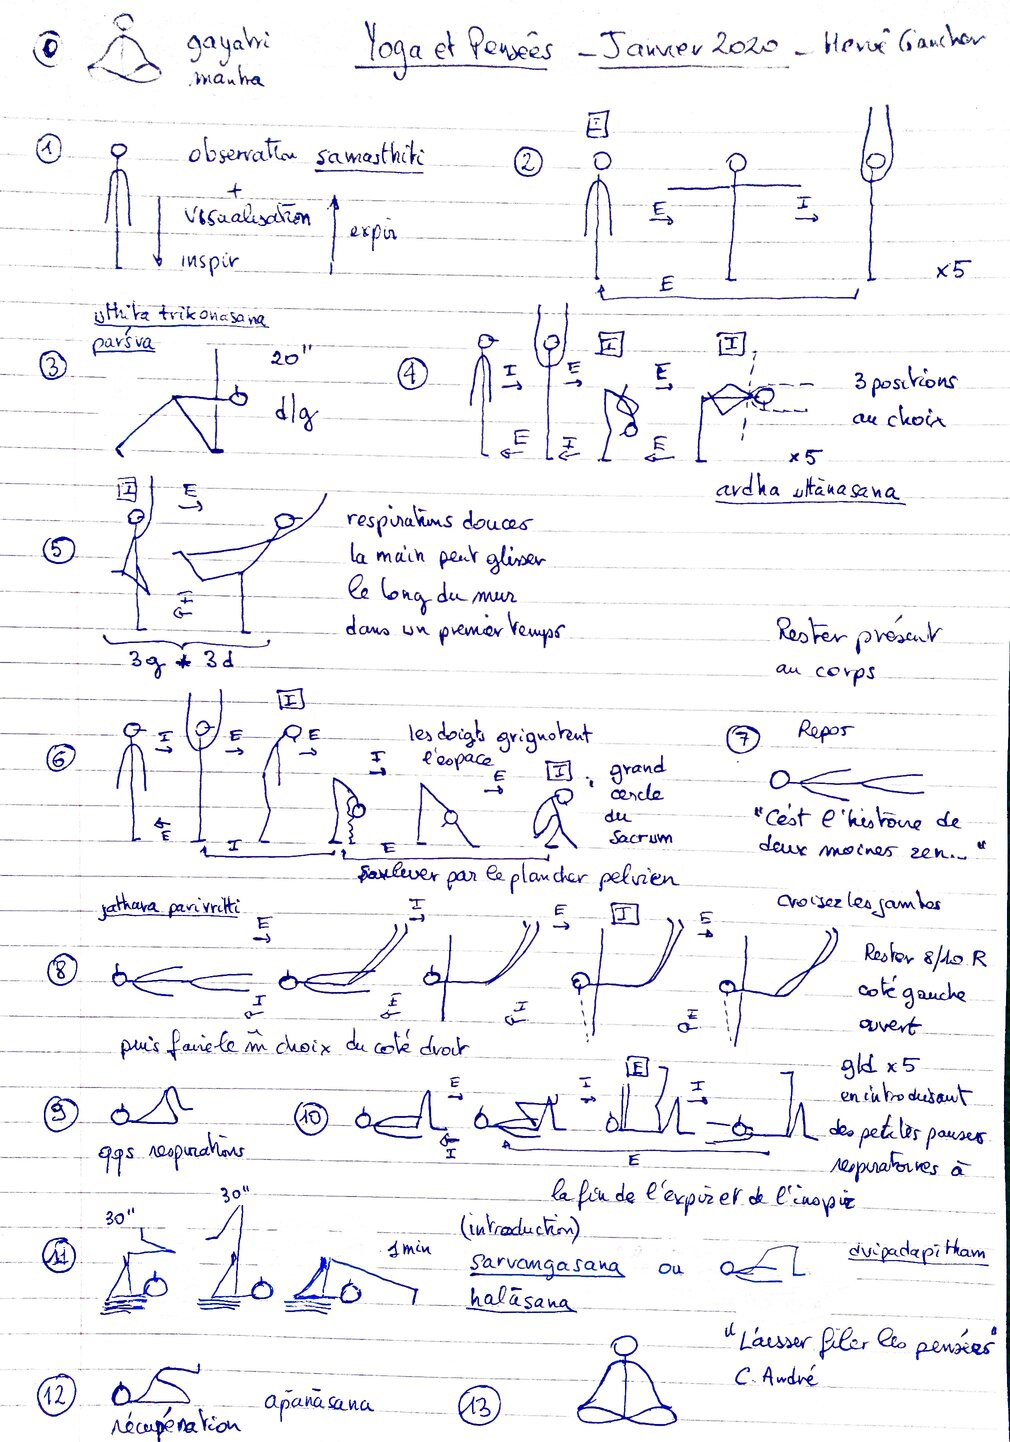 0 gayatri Yoga et Pensées - Janvier 2020 - Hervé
mantra
1 observation samasthiti
+
visualisation
inspir
expir
2 E
E I
E
x5
utthita trikonasana
parśva
3 20"
d/g
4 I E I E I
E I E
3 positions
au choix
x5
ardha uttānasana
5 I E
I
respirations douces
la main peut glisser
le long du mur
dans un premier temps
3g * 3d
Rester présent
au corps
6 I E I E I E I
E I E
les doigts grignotent
l'espace
grand
cercle
du
sacrum
soulever par le plancher pelvien
7 Repos
"C'est l'histoire de
deux moines zen..."
jathara parivritti
croisez les jambes
8 E I E I E
I E I E
Rester 8/10 R
coté gauche
ouvert
puis faire le m̂ choix du coté droit
9
qqs respirations
10 E I E I
I E
g/d x5
en introduisant
des petites pauses
respiratoires à
la fin de l'expir et de l'inspir
11 30" 30" 1 min
(introduction)
sarvangasana ou dvipadapitham
halāsana
12 apānāsana
récupération
13 "Laisser filer les pensées"
C. André